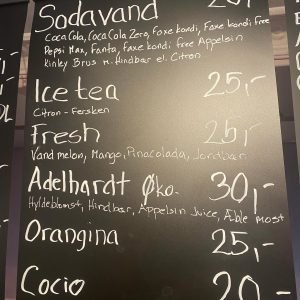 Sodavand
CocaCola, CocaCola Zero, Faxe kondi, Faxe kondi free
Pepsi Max, Fanta, Faxe kondi free Appelsin
Kinley Brus m. Hindbær el. Citron
Ice tea 25,-
Citron - Fersken
Fresh 25,-
Vandmelon, Mango, Pinacolada, Jordbær
Adelhardt Øko. 30,-
Hyldeblomst, Hindbær, Appelsin Juice, Æble most
Orangina 25,-
Cocio 20,-